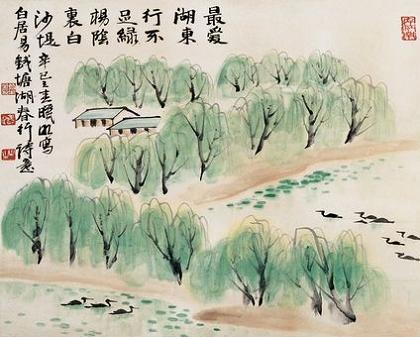 最爱
湖東
行不
足綠
楊陰
裏白
沙堤辛巳寫
白居易錢塘湖春行詩意